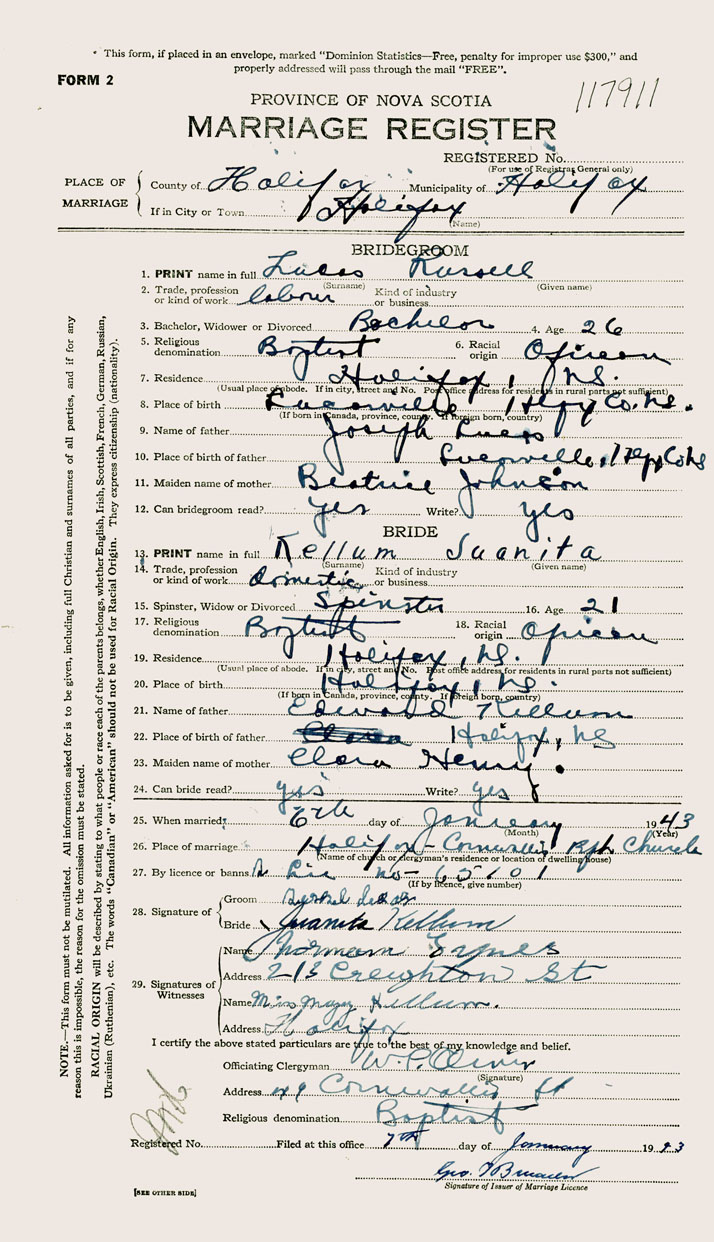 * This form, if placed in an envelope, marked "Dominion Statistics—Free, penalty for improper use $300," and
properly addressed will pass through the mail "FREE".
FORM 2
117911
PROVINCE OF NOVA SCOTIA
MARRIAGE REGISTER
REGISTERED No.
(For use of Registrar General only)
PLACE OF MARRIAGE
County of Halifax Municipality of Halifax
If in City or Town Halifax
(Name)
BRIDEGROOM
1. PRINT name in full Lucas Russell
(Surname) (Given name)
2. Trade, profession or kind of work labour Kind of industry or business
3. Bachelor, Widower or Divorced Bachelor 4. Age 26
5. Religious denomination Baptist 6. Racial origin African
7. Residence Halifax, NS.
(Usual place of abode. If in city, street and No. Post office address for residents in rural parts not sufficient)
8. Place of birth Lucasville, Hfx Co. NS.
(If born in Canada, province, county. If foreign born, country)
9. Name of father Joseph Lucas
10. Place of birth of father Lucasville, Hfx Co NS
11. Maiden name of mother Beatrice Johnson
12. Can bridegroom read? yes Write? yes
BRIDE
13. PRINT name in full Kellum Juanita
(Surname) (Given name)
14. Trade, profession or kind of work domestic Kind of industry or business
15. Spinster, Widow or Divorced Spinster 16. Age 21
17. Religious denomination Baptist 18. Racial origin African
19. Residence Halifax, NS.
(Usual place of abode. If in city, street and No. Post office address for residents in rural parts not sufficient)
20. Place of birth Halifax, NS.
(If born in Canada, province, county. If foreign born, country)
21. Name of father Edward Kellum
22. Place of birth of father Halifax, NS
23. Maiden name of mother Clara Henry.
24. Can bride read? yes Write? yes
25. When married: 6th day of January 1943
(Month) (Year)
26. Place of marriage Halifax - Cornwallis Bpt. Church
(Name of church or clergyman's residence or location of dwelling house)
27. By licence or banns Lic no-
(If by licence, give number)
28. Signature of
Groom
Bride Juanita Kellum
29. Signatures of Witnesses
Name Norman
Address 213 Creighton St
Name Miss Kellum.
Address Halifax
I certify the above stated particulars are true to the best of my knowledge and belief.
Officiating Clergyman W.P. Oliver
(Signature)
Address Cornwallis St
Religious denomination Baptist
Registered No. Filed at this office 7th day of January 1943
Geo.
Signature of Issuer of Marriage Licence
[SEE OTHER SIDE]
NOTE.—This form must not be mutilated. All information asked for is to be given, including full Christian and surnames of all parties, and if for any
reason this is impossible, the reason for the omission must be stated.
RACIAL ORIGIN will be described by stating to what people or race each of the parents belongs, whether English, Irish, Scottish, French, German, Russian,
Ukrainian (Ruthenian), etc. The words "Canadian" or "American" should not be used for Racial Origin. They express citizenship (nationality).